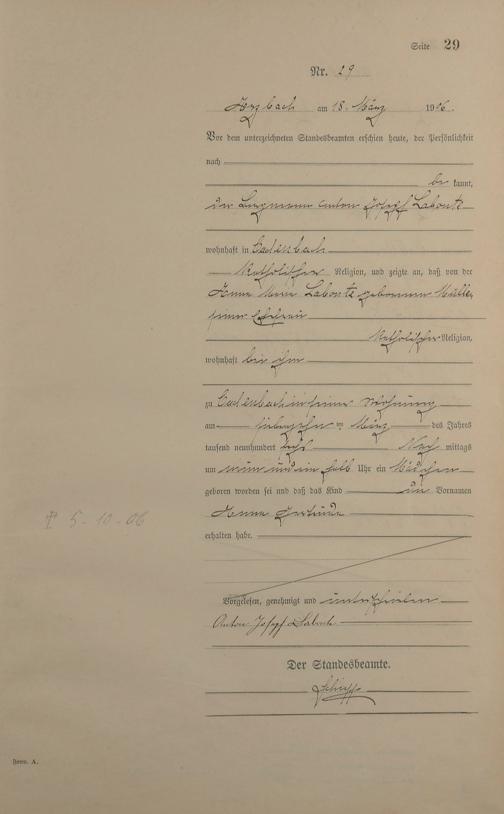 Seite 29
Nr. 29
Arzbach am 18. März 1906.
Vor dem unterzeichneten Standesbeamten erschien heute, der Persönlichkeit
nach
be kannt,
der Bergmann Anton Josef Labonte
wohnhaft in Cadenbach
Katholischer Religion, und zeigte an, daß von der
Anna Maria Labonte geborenen Müller,
seiner Ehefrau
Katholischer Religion,
wohnhaft bei ihm
zu Cadenbach in seiner Wohnung
am siebzehn ten März des Jahres
tausend neunhundert sechs Nach mittags
um neun und ein halb Uhr ein Mädchen
geboren worden sei und daß das Kind die Vornamen
Anna Gertrude
✝ 5-10-06
erhalten habe.
Vorgelesen, genehmigt und unterschrieben
Anton Josef Labonte
Der Standesbeamte.
Form. A.